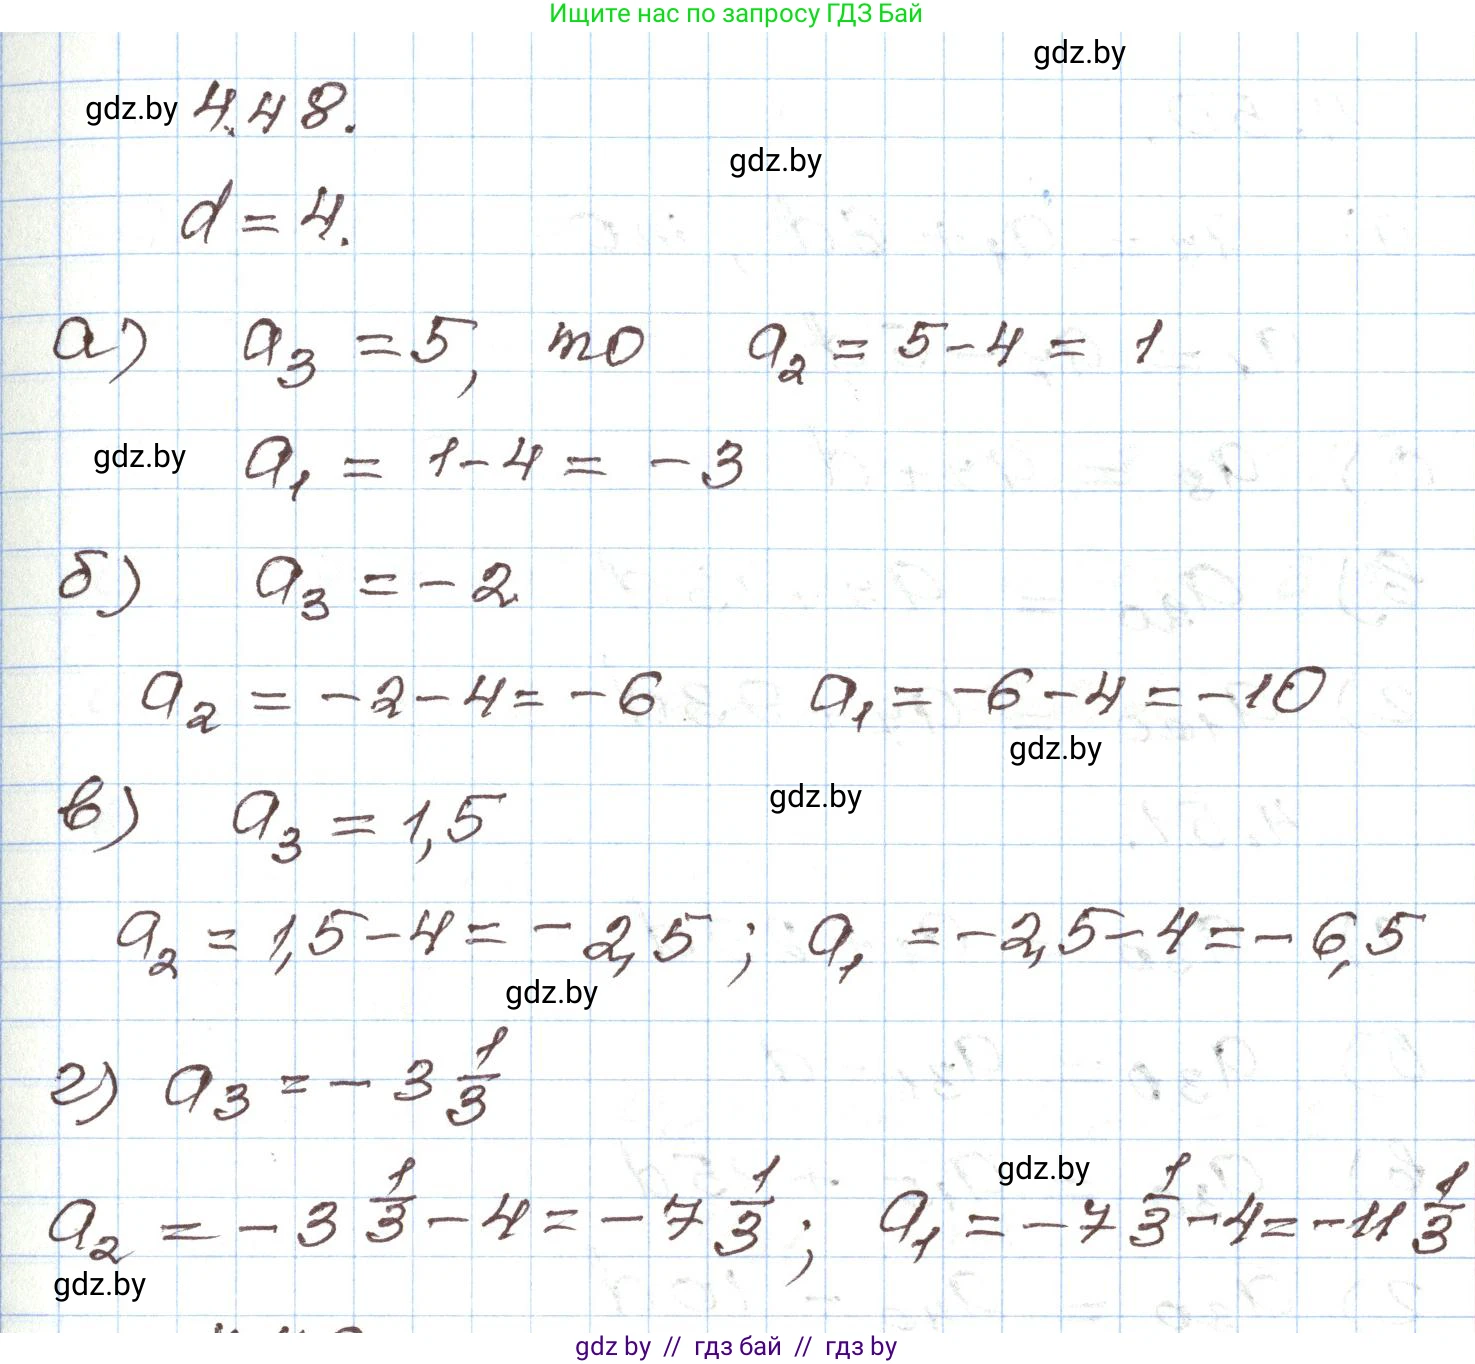 Ищите нас по запросу ГДЗ Бай
gdz.by
gdz.by 4.48.
gdz.by
d = 4.
а) a₃ = 5, то a₂ = 5 - 4 = 1
gdz.by a₁ = 1 - 4 = - 3
б) a₃ = - 2
a₂ = - 2 - 4 = - 6 a₁ = - 6 - 4 = - 10
gdz.by
gdz.by
в) a₃ = 1,5
a₂ = 1,5 - 4 = - 2,5 ; a₁ = - 2,5 - 4 = - 6,5
gdz.by
г) a₃ = - 3 1/3
gdz.by
a₂ = - 3 1/3 - 4 = - 7 1/3 ; a₁ = - 7 1/3 - 4 = - 11 1/3
gdz.by
gdz by // гдз бай // гдз by